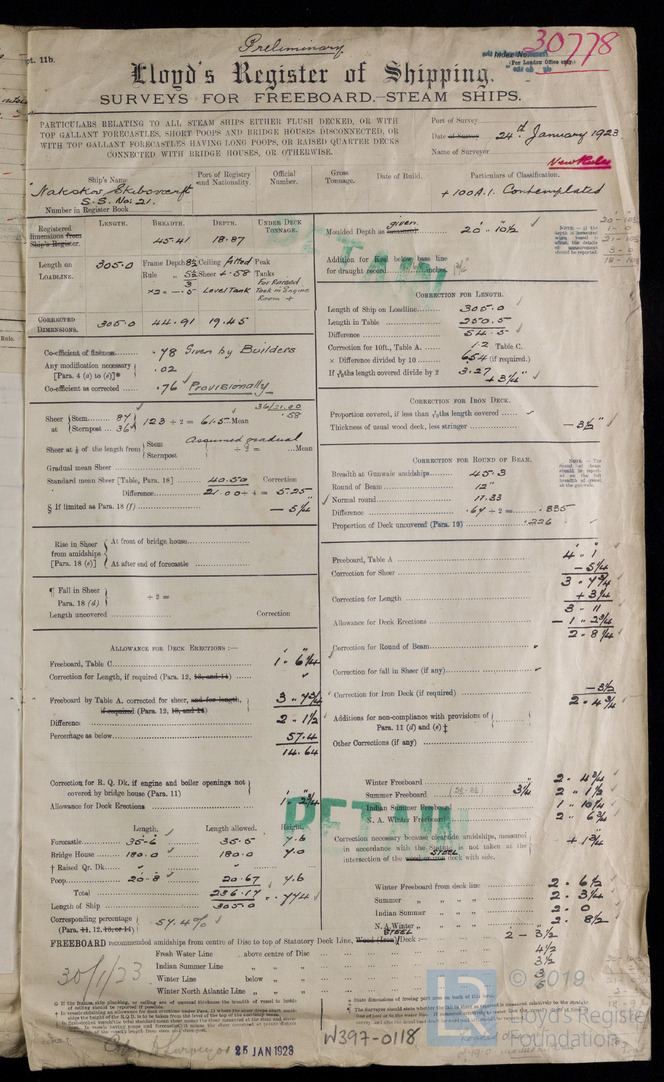 Preliminary
pt. 11b.
30778
(For London Office only.)
Lloyd's Register of Shipping.
SURVEYS FOR FREEBOARD.—STEAM SHIPS.
PARTICULARS RELATING TO ALL STEAM SHIPS EITHER FLUSH DECKED, OR WITH
TOP GALLANT FORECASTLES, SHORT POOPS AND BRIDGE HOUSES DISCONNECTED, OR
WITH TOP GALLANT FORECASTLES HAVING LONG POOPS, OR RAISED QUARTER DECKS
CONNECTED WITH BRIDGE HOUSES, OR OTHERWISE.
Port of Survey
Date of Survey 24th January 1923
Name of Surveyor
New Rules
Ship's Name. Port of Registry and Nationality. Official Number. Gross Tonnage. Date of Build. Particulars of Classification.
S.S. No: 21.
+100A.1. Contemplated
Number in Register Book
LENGTH. BREADTH. DEPTH. UNDER DECK TONNAGE.
Registered dimensions from Ship's Register. 45.41 18.87
Length on LOADLINE. 305.0 Frame Depth 8½ Ceiling fitted Peak
Rule 5½ Sheer + .58 Tanks
3 For Raised
×2 = -.5 Level Tank Tank in Engine
Room +
CORRECTED DIMENSIONS. 305.0 44.91 19.45
Co-efficient of fineness .78 Given by Builders
Any modification necessary [Para. 4 (a) to (e)]* .02
Co-efficient as corrected .76 Provisionally
36/21.00
.58
Sheer at { Stem 87 Sternpost 36 } 123 ÷ 2 = 61.5 Mean
Sheer at ⅛ of the length from { Stem Sternpost Assumed gradual ÷ 2 = Mean
Gradual mean Sheer
Standard mean Sheer [Table, Para. 18] 40.50 Correction
Difference 21.00 ÷ 4 = 5.25"
§ If limited as Para. 18 (f) - 5¼
Rise in Sheer from amidships [Para. 18 (e)] { At front of bridge house
At after end of forecastle
¶ Fall in Sheer Para. 18 (d) } ÷ 2 =
Length uncovered Correction
ALLOWANCE FOR DECK ERECTIONS :—
Freeboard, Table C 1 - 6¼
Correction for Length, if required (Para. 12, 13, and 14)
Freeboard by Table A. corrected for sheer, and for length, if required (Para. 12, 13, and 14) 3 - 7¾
Difference 2 - 1½
Percentage as below 57.4
14.64
Correction for R. Q. Dk. if engine and boiler openings not covered by bridge house (Para. 11)
Allowance for Deck Erections 1 - 2¾
Length. Length allowed. Height.
Forecastle 35-6 35.5 7.6
Bridge House 180.0 180.0 7.0
† Raised Qr. Dk.
Poop 20-8 20.67 7.6
Total 236.17
Length of Ship 305.0 .774
Corresponding percentage (Para. 11, 12, 13, or 14) 57.4%
Moulded Depth as given 20' - 10½
Addition for Keel below base line
for draught record inches.
CORRECTION FOR LENGTH.
Length of Ship on Loadline 305.0
Length in Table 250.5
Difference 54.5
Correction for 10ft., Table A. 1.2 Table C.
× Difference divided by 10 6.54 (if required.)
If 6/10ths length covered divide by 2 3.27
+ 3¼"
CORRECTION FOR IRON DECK.
Proportion covered, if less than 7/10ths length covered
Thickness of usual wood deck, less stringer - 3½"
CORRECTION FOR ROUND OF BEAM.
Breadth at Gunwale amidships 45.3
Round of Beam 12"
Normal round 11.33
Difference .67 ÷ 2 = .335
Proportion of Deck uncovered (Para. 19) .226
Freeboard, Table A 4 - 1
Correction for Sheer - 5¼
3 - 7¾
Correction for Length + 3¼
3 - 11
Allowance for Deck Erections - 1 - 2¾
2 - 8¼
Correction for Round of Beam
Correction for fall in Sheer (if any)
Correction for Iron Deck (if required) - 3½
2 - 4¾
Additions for non-compliance with provisions of Para. 11 (d) and (e) ‡
Other Corrections (if any)
Winter Freeboard 2 - 4¾
Summer Freeboard 3¼ 2 - 1½
Indian Summer Freeboard 1 - 10¼
N. A. Winter Freeboard 2 - 6¾
Correction necessary because clearside amidships, measured
in accordance with the Statute is not taken at the
intersection of the wood or iron STEEL deck with side. + 1¾
Winter Freeboard from deck line 2 - 6½
Summer " " " " 2 - 3¼
Indian Summer " " " 2 - 0
N. A. Winter " " " 2 - 8½
FREEBOARD recommended amidships from centre of Disc to top of Statutory Deck Line, Wood (Iron) STEEL Deck :— 2 - 3½
Fresh Water Line above centre of Disc 4½
Indian Summer Line " " 3½
Winter Line below " 3
Winter North Atlantic Line " " 6
RETAIN
RETAIN
30/1/23
25 JAN 1923
W397-0118
LR
© 2019
Lloyd's Register
Foundation